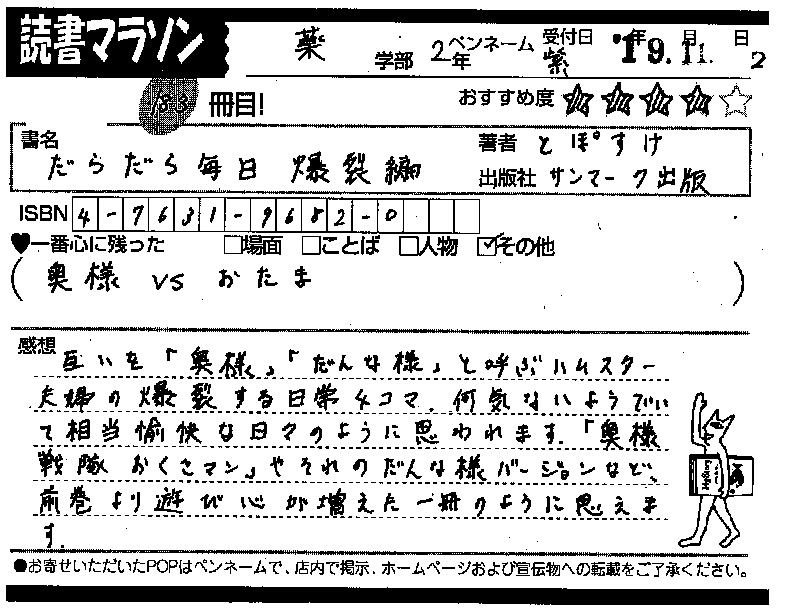 読書マラソン 薬 学部 2年 ペンネーム 紫 受付日 '19年11月2日
183 冊目! おすすめ度 ★★★★☆
書名 だらだら毎日 爆裂編 著者 とぽすけ
出版社 サンマーク出版
ISBN 4-7631-9682-0
♥一番心に残った □場面 □ことば □人物 ☑その他
(奥様 vs おたま)
感想 互いを「奥様」「だんな様」と呼ぶハムスター
夫婦の爆裂する日常4コマ。何気ないようでい
て相当愉快な日々のように思われます。「奥様
戦隊おくさマン」やそれのだんな様バージョンなど、
前巻より遊び心が増えた一冊のように思えま
す。
●お寄せいただいたPOPはペンネームで、店内で掲示、ホームページおよび宣伝物への転載をご了承ください。